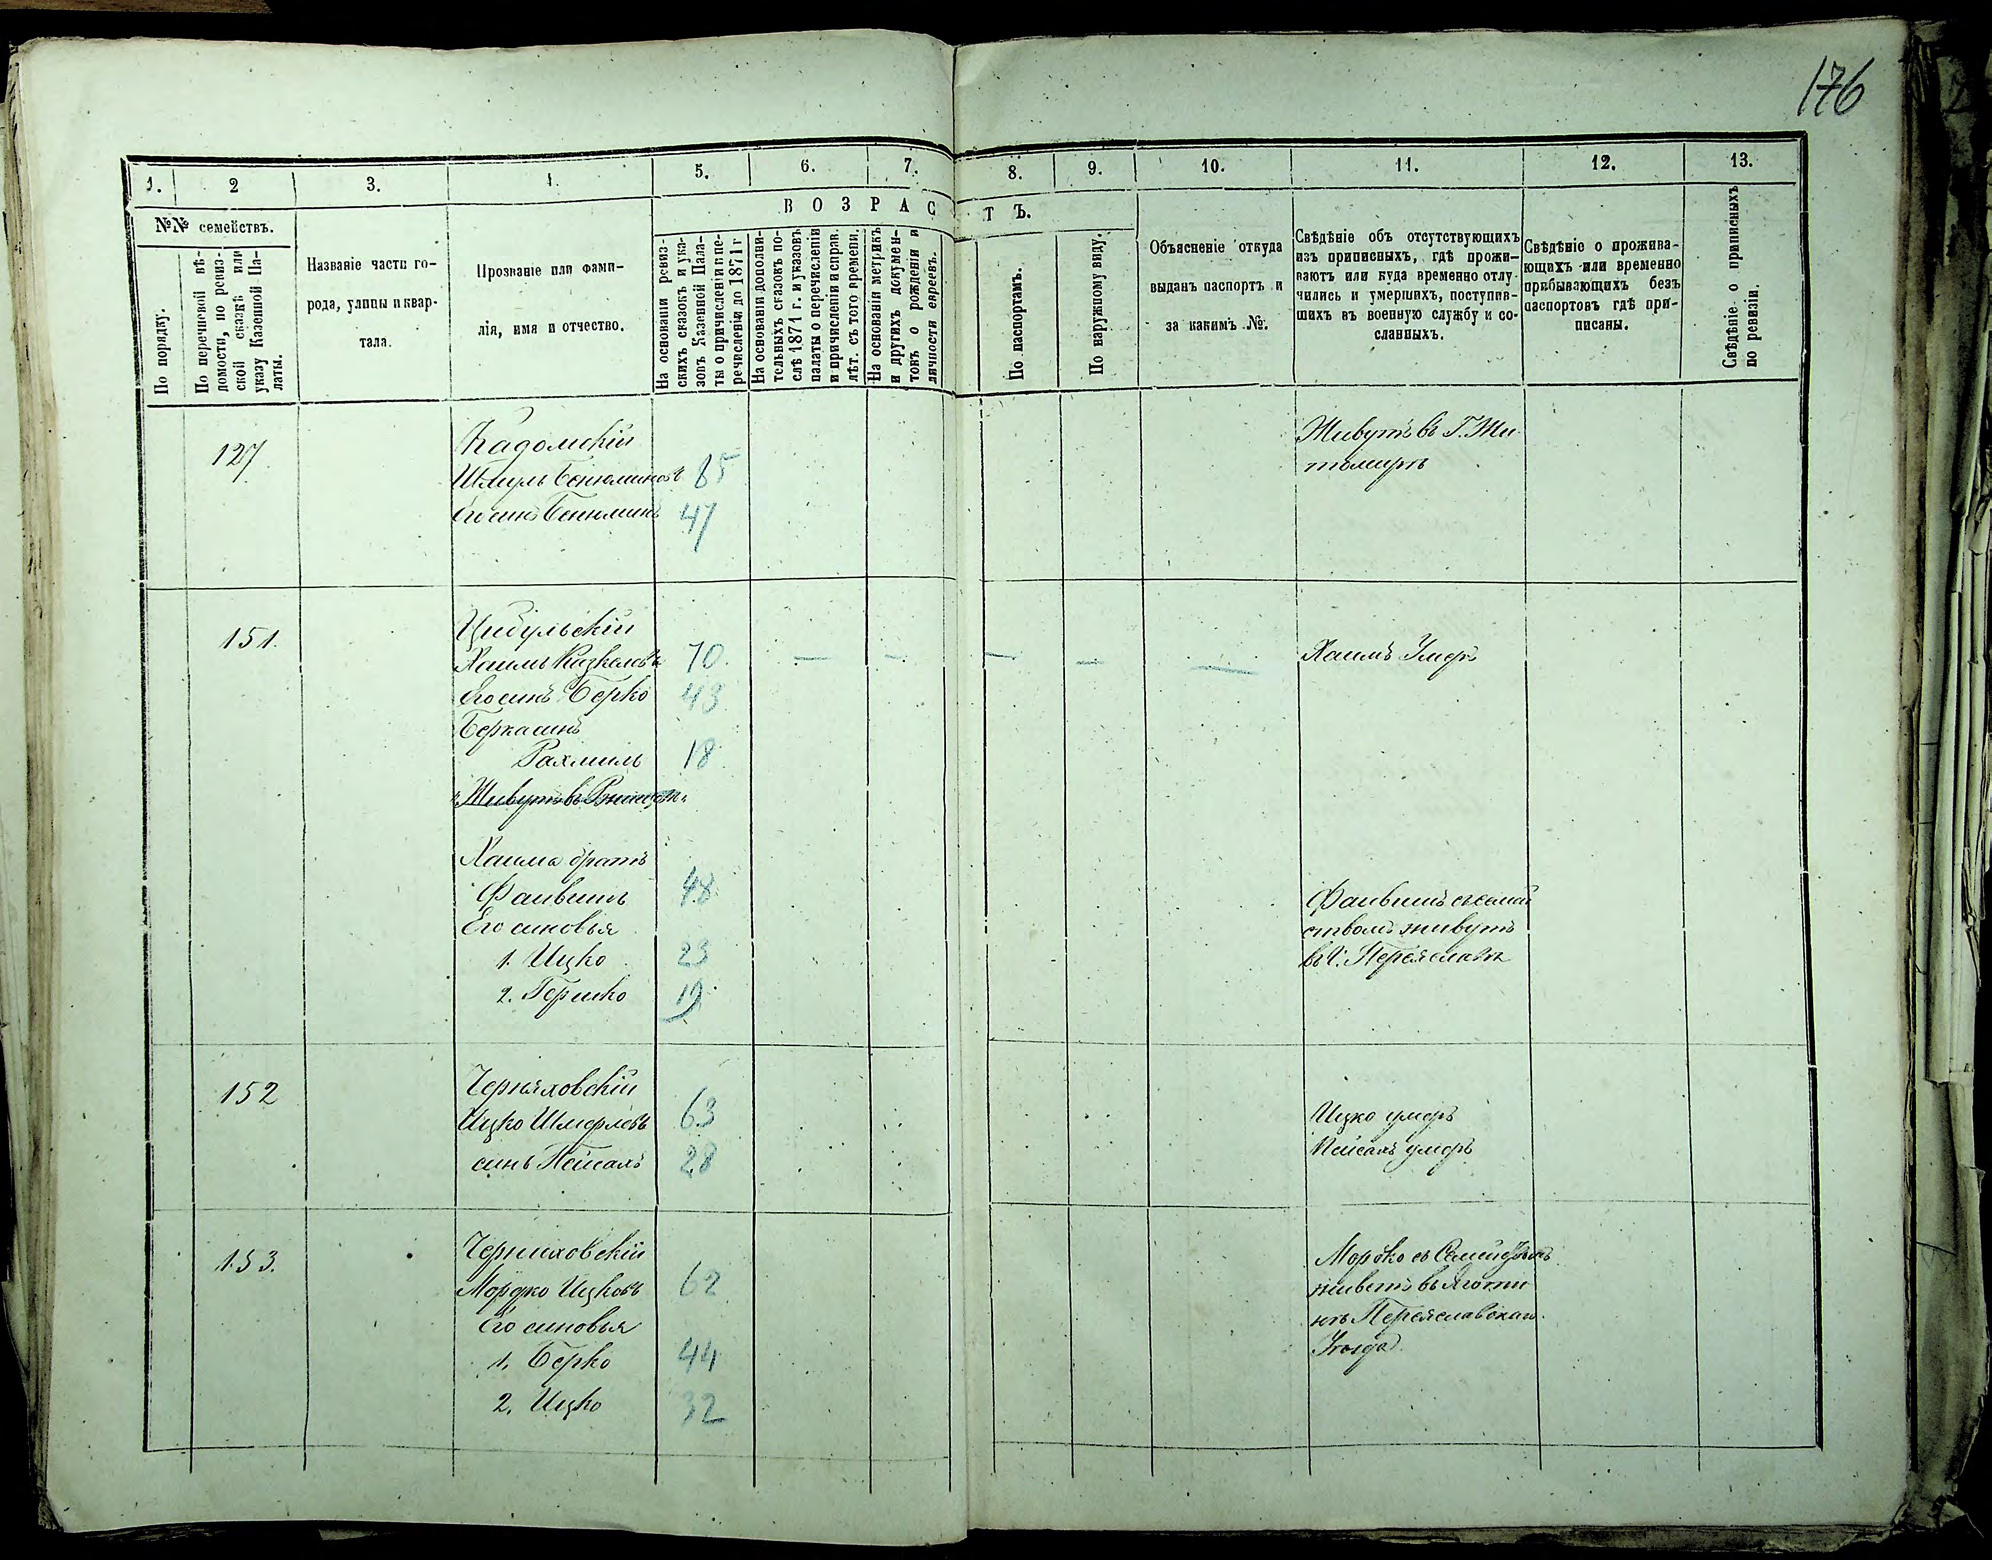 176
1.
2
3.
4.
5.
6.
7.
8.
9.
10.
11.
12.
13.
№№ семействъ.
По порядку.
По перечневой вѣ-
домости, по ревиз-
ской сказкѣ или
указу Казенной Па-
латы.
Названіе части го-
рода, улицы и квар-
тала.
Прозваніе или фами-
лія, имя и отчество.
ВОЗРАСТЪ.
На основаніи ревиз-
скихъ сказокъ и ука-
зовъ Казенной Пала-
ты о причисленіи и пе-
речисленіи до 1871 г
На основаніи дополни-
тельныхъ сказокъ по-
слѣ 1871 г. и указовъ
палаты о перечисленіи
и причисленіи и справ.
лѣт. съ того времени.
На основаніи метрикъ
и другихъ докумен-
товъ о рожденіи и
личности евреевъ.
По паспортамъ.
По наружному виду.
Объясненіе откуда
выданъ паспортъ и
за какимъ №.
Свѣдѣніе объ отсутствующихъ
изъ приписныхъ, гдѣ прожи-
ваютъ или куда временно отлу-
чились и умершихъ, поступив-
шихъ въ военную службу и со-
сланныхъ.
Свѣдѣніе о прожива-
ющихъ или временно
прибывающихъ безъ
паспортовъ гдѣ при-
писаны.
Свѣдѣніе о приписныхъ
по ревизіи.
127
Кадомскій
Шмуль Бенюминовъ 85
Его синъ Бенюминъ 47
Живутъ въ Г. Жи-
томирѣ
151.
Цибульскій
Хаимъ Кизкелевъ 70. — — — — —
Его синъ Берко 43
Берка синъ
Рахмиль 18
Живутъ въ
Хаимъ Умеръ
Хаима братъ
Фаивишъ 48
Его синовья
1. Ицко 23
2. Гершко 19
Фаивишъ съ семей
ствомъ живутъ
въ Г. Переяславѣ
152
Черняховскій
Ицко Шмерлевъ 63
синъ Пейсахъ 28
Ицко умеръ
Пейсахъ умеръ
153.
Черниховскій
Мордко Ицковъ 62
Его синовья
1. Берко 44
2. Ицко 32
Мордко съ Семействомъ
живетъ въ Яготи
нѣ Переяславскаго
Уѣзда